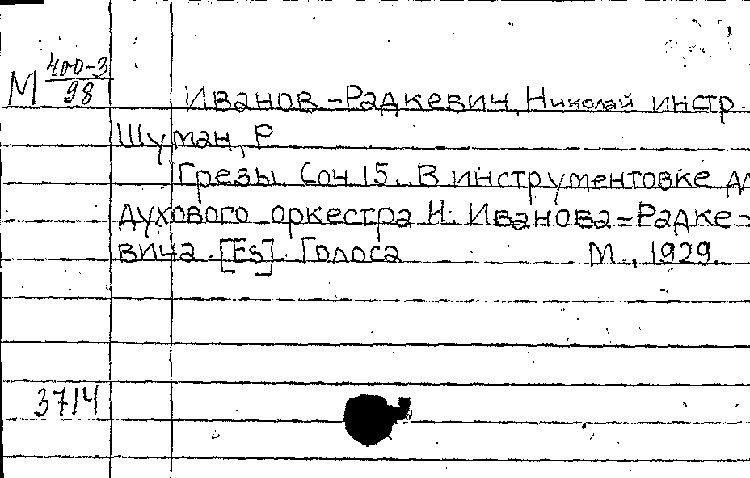 М 400-3/98
Иванов-Радкевич, Николай инстр.
Шуман, Р.
Грезы Соч 15. В инструментовке дл
духового оркестра Н. Иванова-Радке-
вича. [Es]. Голоса М., 1929.
3714